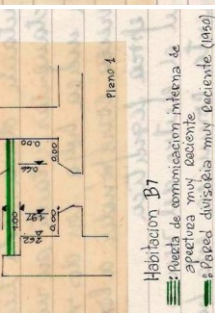 Plano 1
0.00
0.00
0.66
1.00
0.00
0.00
2.62
Habitacion B7
: Puerta de comunicacion interna de
apertura muy Reciente
: Pared divisoria muy Reciente (1950)